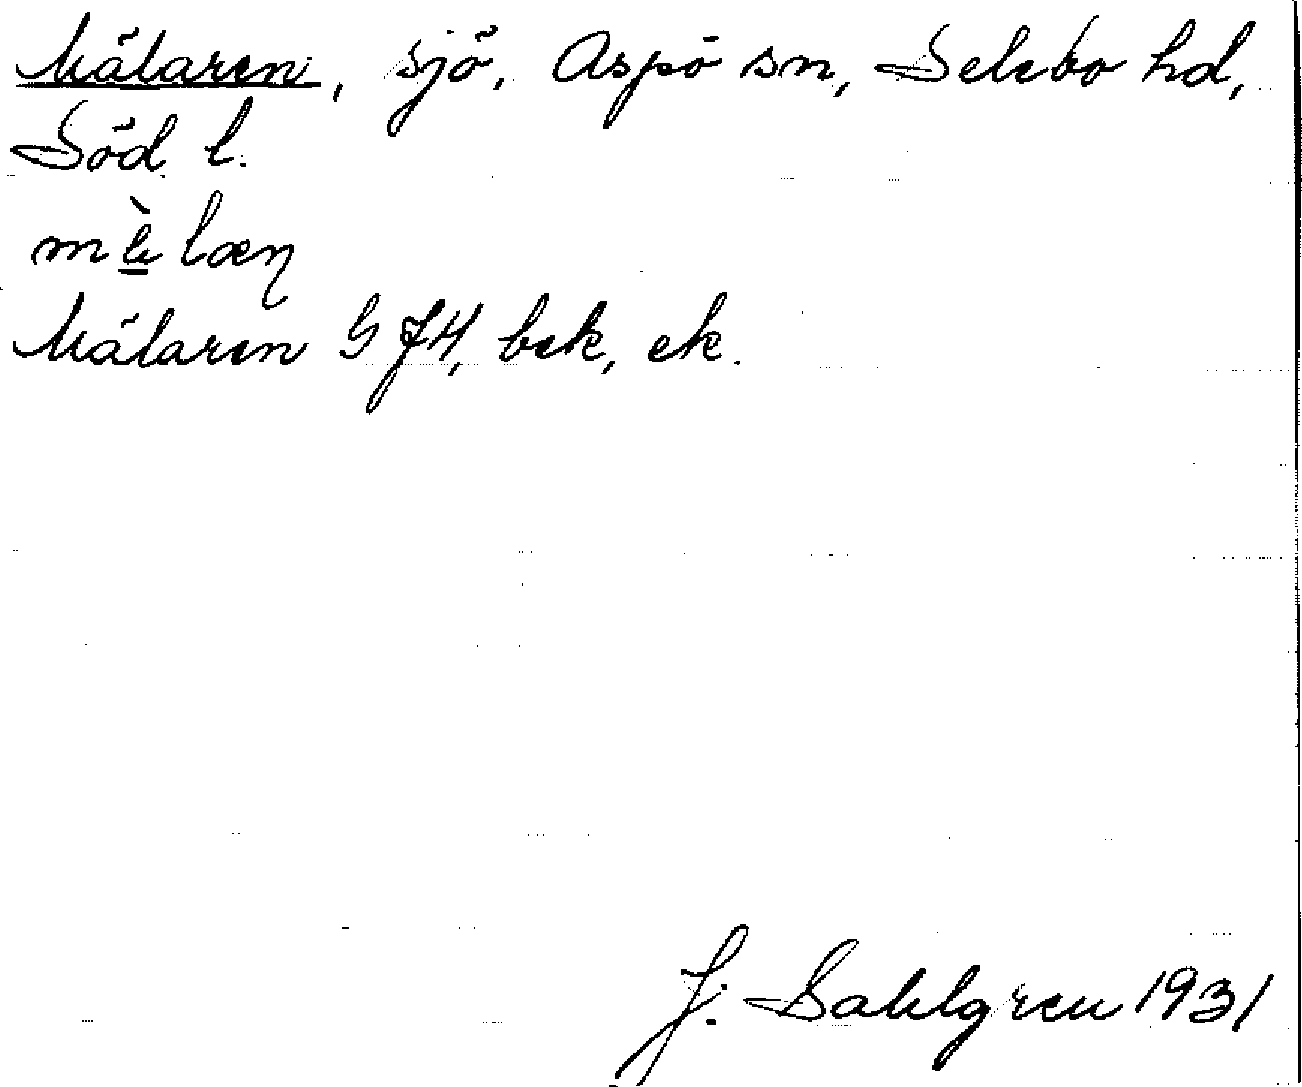 Mälaren, sjö, Aspö sn, Selebo hd,
Söd. l.
Mälaren G J 4, bek, ek.
J. Sahlgren 1931